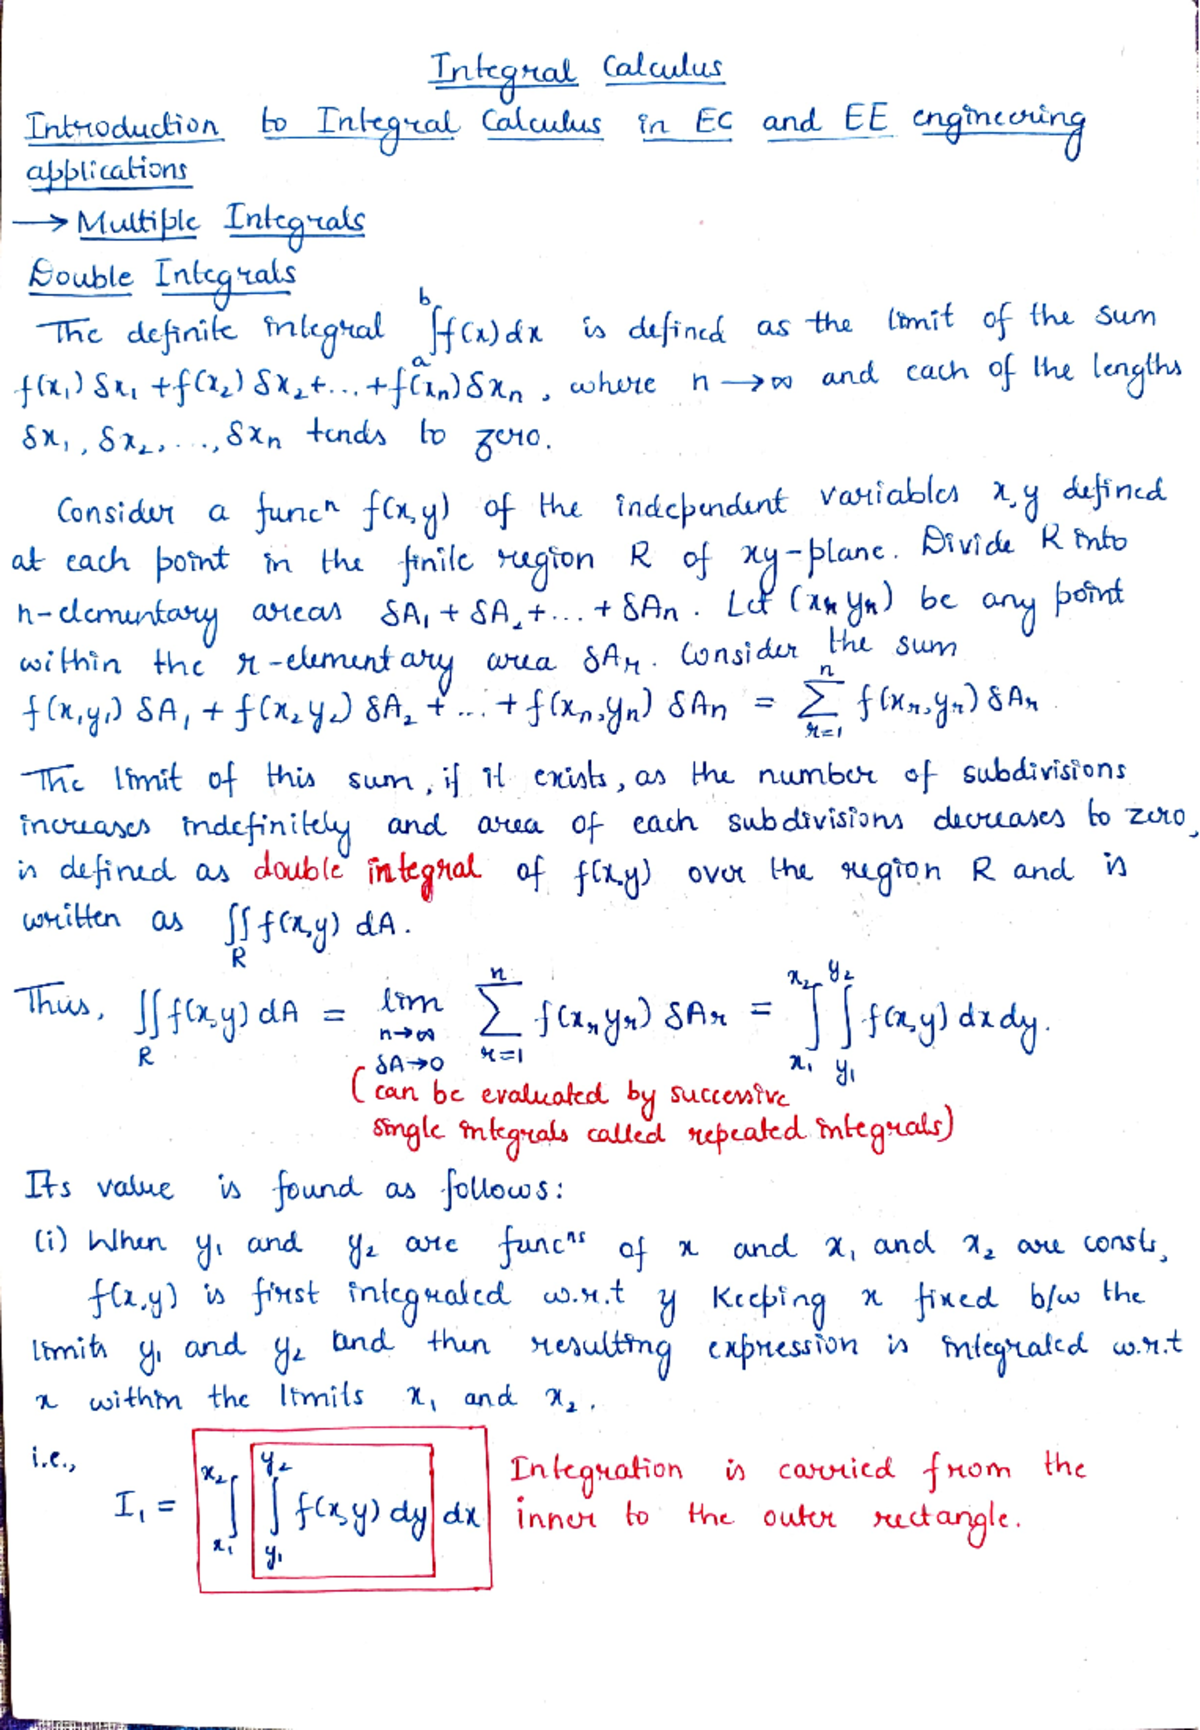 Integral Calculus
Introduction to Integral Calculus in EC and EE engineering
applications
→ Multiple Integrals
Double Integrals
The definite integral ∫ₐᵇ f(x) dx is defined as the limit of the sum
f(x₁) δx₁ + f(x₂) δx₂ + ... + f(xₙ) δxₙ, where n → ∞ and each of the lengths
δx₁, δx₂, ..., δxₙ tends to zero.
Consider a funcⁿ f(x,y) of the independent variables x, y defined
at each point in the finite region R of xy-plane. Divide R into
n-elementary areas δA₁ + δA₂ + ... + δAₙ. Let (xᵣ yᵣ) be any point
within the r-elementary area δAᵣ. Consider the sum
f(x₁y₁) δA₁ + f(x₂y₂) δA₂ + ... + f(xₙ,yₙ) δAₙ = Σᵣ₌₁ⁿ f(xᵣ,yᵣ) δAᵣ.
The limit of this sum, if it exists, as the number of subdivisions
increases indefinitely and area of each subdivisions decreases to zero,
is defined as double integral of f(x,y) over the region R and is
written as ∬_R f(x,y) dA.
Thus, ∬_R f(x,y) dA = lim_{n→∞, δA→0} Σᵣ₌₁ⁿ f(xᵣ yᵣ) δAᵣ = ∫_{x₁}^{x₂} ∫_{y₁}^{y₂} f(x,y) dx dy.
(can be evaluated by successive
single integrals called repeated integrals)
Its value is found as follows:
(i) When y₁ and y₂ are funcⁿˢ of x and x₁ and x₂ are consts,
f(x,y) is first integrated w.r.t y keeping x fixed b/w the
limits y₁ and y₂ and then resulting expression is integrated w.r.t
x within the limits x₁ and x₂.
i.e.,
I₁ = ∫_{x₁}^{x₂} ∫_{y₁}^{y₂} f(x,y) dy dx
Integration is carried from the
inner to the outer rectangle.